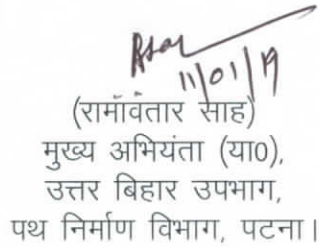 11/01/19
(रामावंतार साह)
मुख्य अभियंता (या0),
उत्तर बिहार उपभाग,
पथ निर्माण विभाग, पटना।